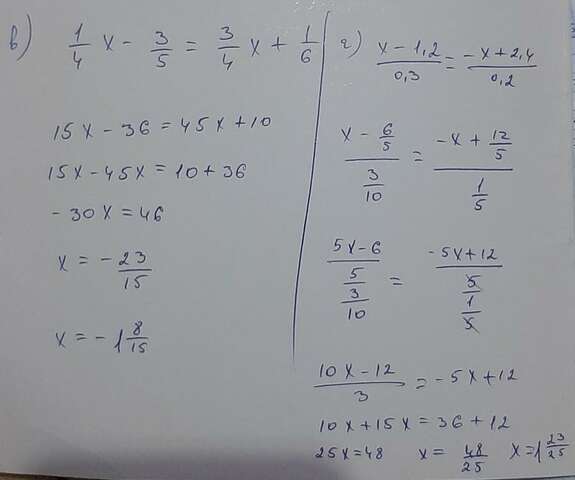 в) 1/4 x - 3/5 = 3/4 x + 1/6
15x - 36 = 45x + 10
15x - 45x = 10 + 36
- 30x = 46
x = - 23/15
x = - 1 8/15
г) (x - 1,2)/0,3 = (-x + 2,4)/0,2
(x - 6/5)/(3/10) = (-x + 12/5)/(1/5)
((5x - 6)/5)/(3/10) = ((-5x + 12)/5)/(1/5)
(10x - 12)/3 = - 5x + 12
10x + 15x = 36 + 12
25x = 48 x = 48/25 x = 1 23/25